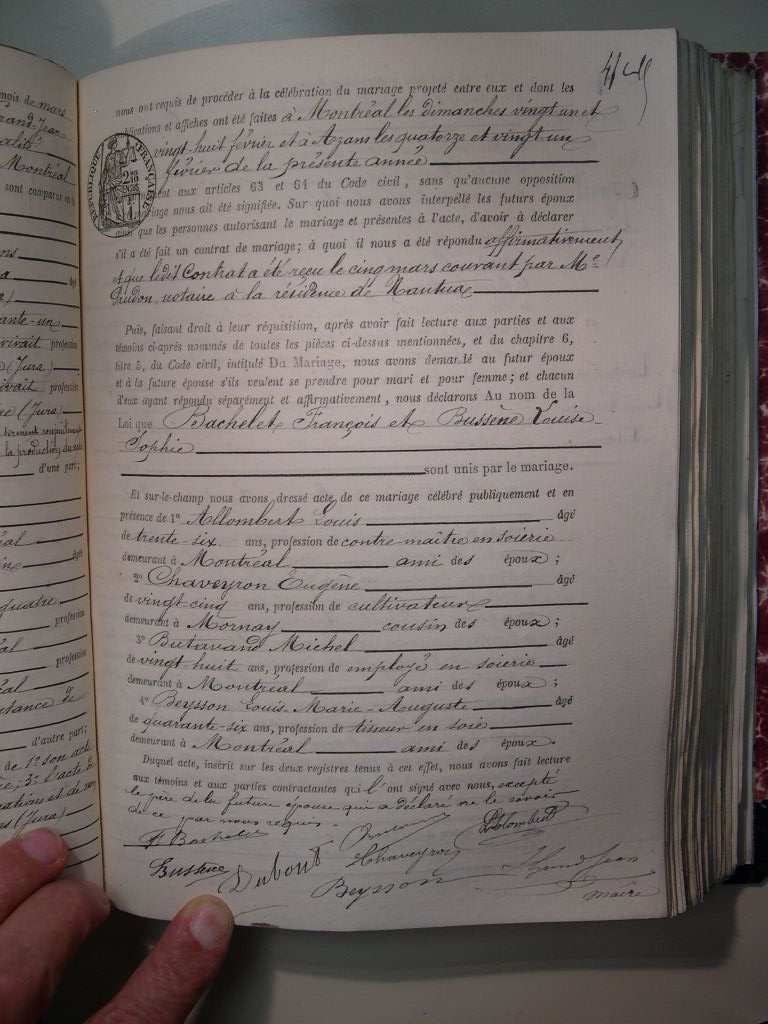 mois de mars
rand-Jean
Montréal
sont comparus
ons
âgé
(Jura)
ante-un
vivait profession
(Jura)
ivait profession
(Jura)
la production
d'une part;
éal
quatre
profession
profession
éal
d'autre part;
de 1° son acte
(Jura)
nous ont requis de procéder à la célébration du mariage projeté entre eux et dont les
publications et affiches ont été faites à Montréal les dimanches vingt un et
vingt huit février et à Azans les quatorze et vingt un
février de la présente année
RÉPUBLIQUE FRANÇAISE
aux articles 63 et 64 du Code civil, sans qu'aucune opposition
mariage nous ait été signifiée. Sur quoi nous avons interpellé les futurs époux
ainsi que les personnes autorisant le mariage et présentes à l'acte, d'avoir à déclarer
s'il a été fait un contrat de mariage; à quoi il nous a été répondu affirmativement
et que ledit Contrat a été reçu le cinq mars courant par Me
Prudon, notaire à la résidence de Nantua
Puis, faisant droit à leur réquisition, après avoir fait lecture aux parties et aux
témoins ci-après nommés de toutes les pièces ci-dessus mentionnées, et du chapitre 6,
titre 5, du Code civil, intitulé Du Mariage, nous avons demandé au futur époux
et à la future épouse s'ils veulent se prendre pour mari et pour femme; et chacun
d'eux ayant répondu séparément et affirmativement, nous déclarons Au nom de la
Loi que Bachelet François et Bussène Louise-
Sophie
sont unis par le mariage.
Et sur-le-champ nous avons dressé acte de ce mariage célébré publiquement et en
présence de 1° Allombert Louis âgé
de trente-six ans, profession de contre-maître en soierie
demeurant à Montréal ami des époux;
2° Chaveyron Eugène âgé
de vingt-cinq ans, profession de cultivateur
demeurant à Mornay cousin des époux;
3° Butavand Michel âgé
de vingt huit ans, profession de employé en soierie
demeurant à Montréal ami des époux;
4° Beysson Louis Marie-Auguste âgé
de quarante-six ans, profession de tisseur en soie
demeurant à Montréal ami des époux.
Duquel acte, inscrit sur les deux registres tenus à cet effet, nous avons fait lecture
aux témoins et aux parties contractantes qui l'ont signé avec nous, excepté
le père de la future épouse qui a déclaré ne le savoir
de ce par nous requis.
F. Bachelet
Allombert
Bussène
Dubout
Chaveyron
Beysson
Grand Jean
maire